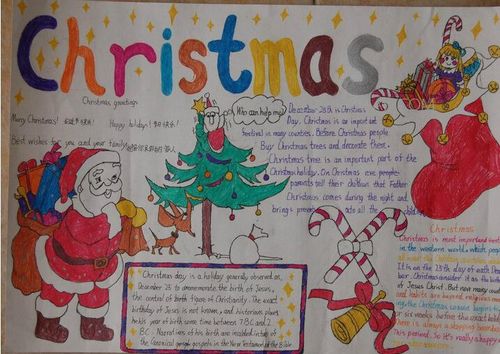 Christmas
Christmas greetings
Merry Christmas! 圣诞快乐!
Happy holidays! 节日快乐!
Best wishes for you and your family
Who can help me?
December 25th is Christmas
Day. Christmas is an important
festival in many countries. Before Christmas people
Buy Christmas trees and decorate them.
Christmas tree is an important part of the
Christmas holiday. On Christmas eve people
parents tell their children that Father
Christmas comes during the night and
brings presents into all the
Christmas day is a holiday generally observed on
December 25 to commemorate the birth of Jesus,
the central figure of Christianity. The exact
birthday of Jesus is not known, and historians place
his year of birth some time between 7BC and 2
BC. Narratives of his birth are included in two of the
Canonical gospels in the New Testament of the Bible.
Christmas
Christmas is most important festival
in the western world. which people
all most the holiday
It is on the 25th day of each Dec
ber. Christmas consider it as the birth
of Jesus Christ. But now many
and habits are beyond religious
ing the Christmas season begins
or six weeks before the exact holiday
There is always a shopping boom
This period. So it's really a happy